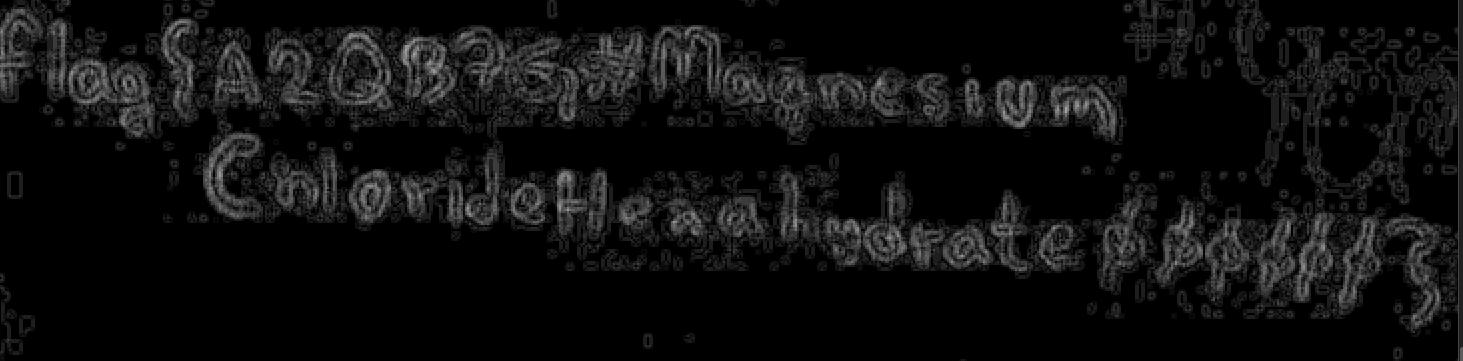 Flag{A2QB7E,#Magnesium
ChlorideHexahydrate$$$$$$}